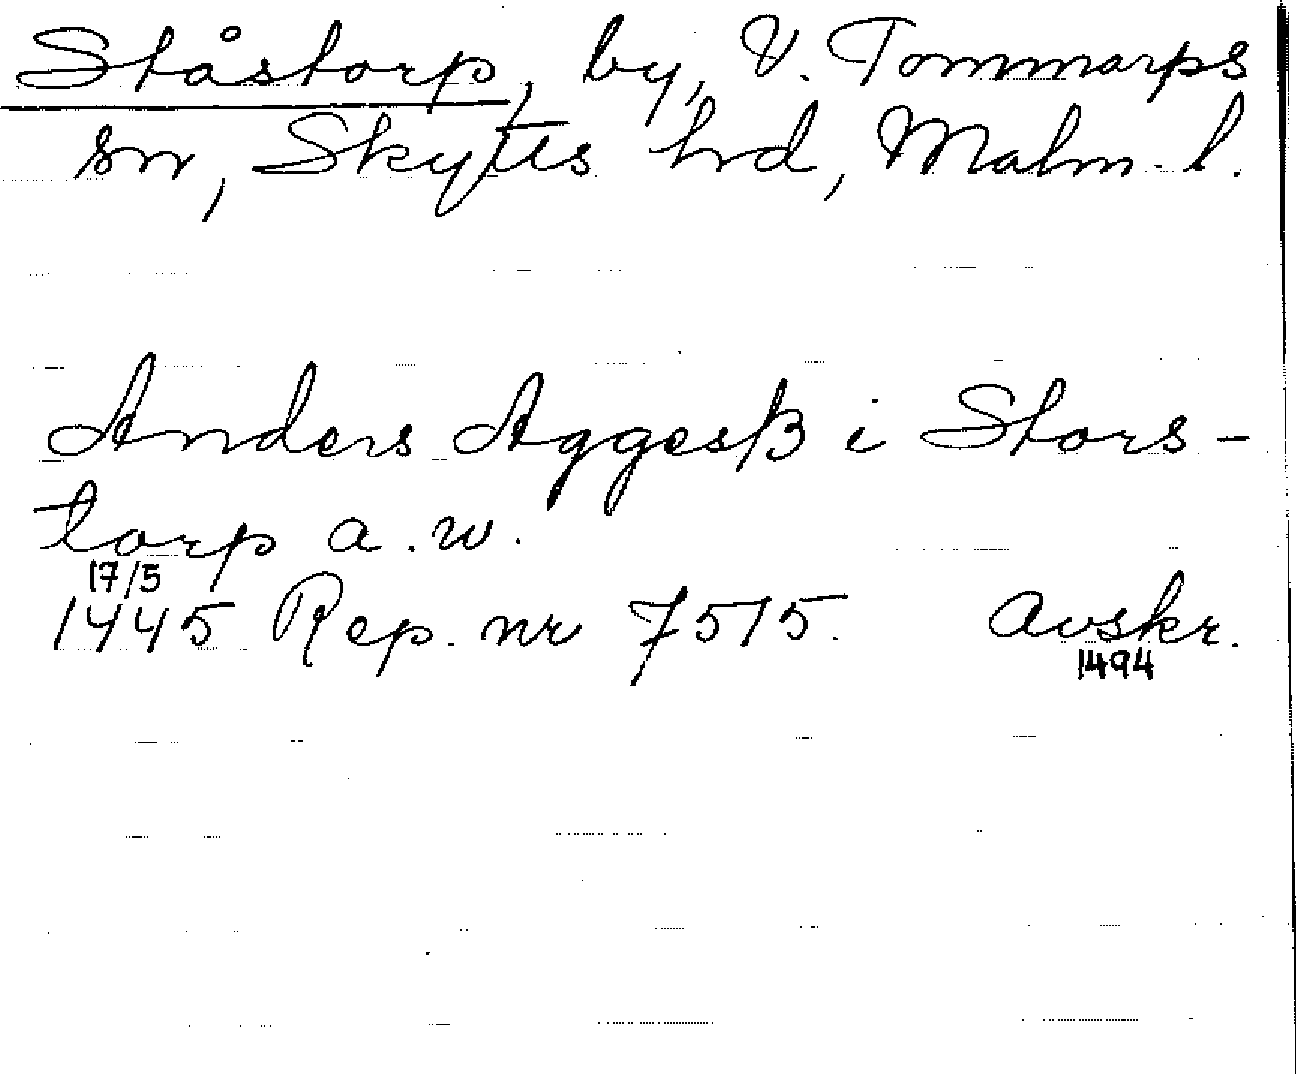 Ståstorp, by, V. Tommarps
sn, Skytts hd, Malm. l.
Anders Aggesß i Stors-
torp a.w.
17/5
1445 Rep. nr 7515. Avskr.
1494